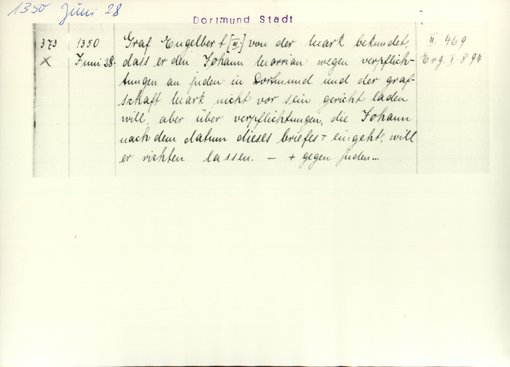 1350 Juni 28
Dortmund Stadt
373 1350 Graf Engelbert [III.] von der Mark bekundet, II. 469
X Juni 28. dass er den Johann Morrian wegen verpflich- Erg. I. 894
tungen an juden in Dortmund und der graf-
schaft Mark nicht vor sein gericht laden
will, aber über verpflichtungen, die Johann
nach dem datum dieses briefes + eingeht, will
er richten lassen. — + gegen juden...